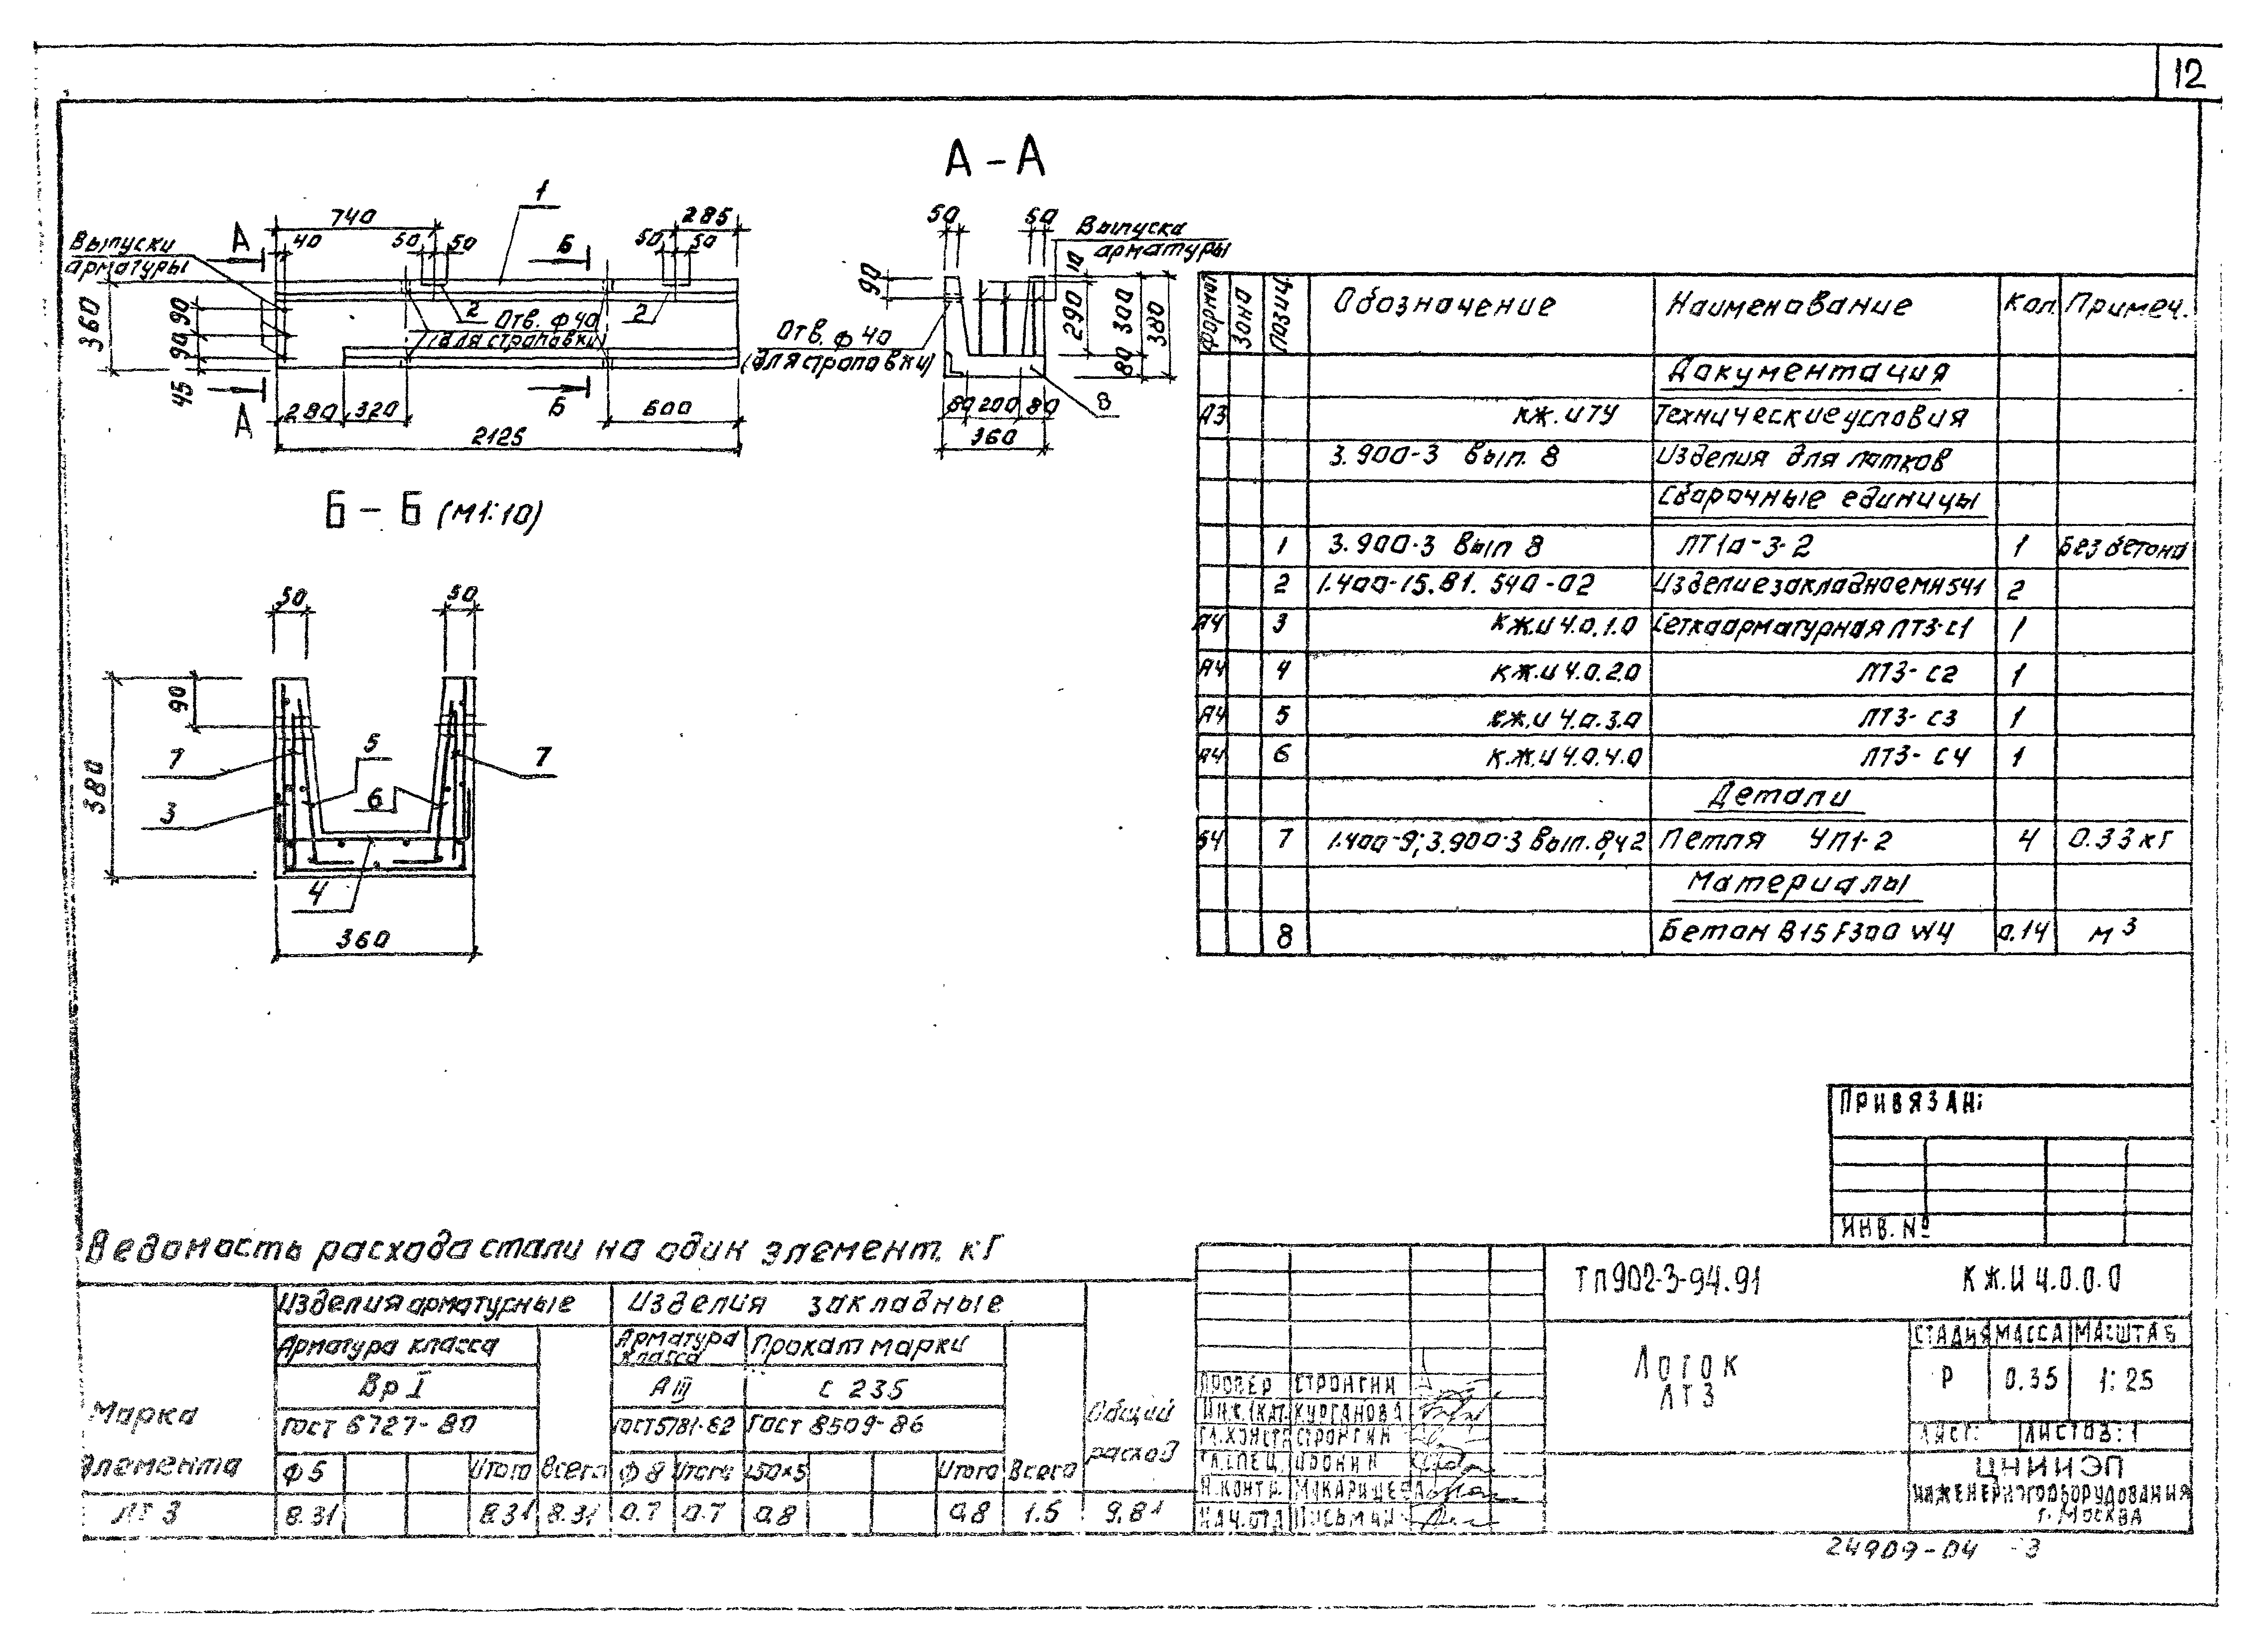 12
А - А
740
1
285
Выпуски
арматуры
А
40
50
50
Б
50
50
360
90
90
45
2
Отв. ф 40
(для строповки)
2
А
280
320
Б
600
2125
50
50
Выпуска
арматуры
90
10
290
300
80
380
Отв. ф 40
(для строповки)
80
200
80
8
360
Б - Б (М1:10)
50
50
90
380
7
5
7
3
6
4
360
Формат
Зона
Позиц.
Обозначение
Наименование
Кол.
Примеч.
Документация
А3 КЖ.И ТУ Технические условия
3.900-3 Вып. 8 Изделия для лотков
Сборочные единицы
1 3.900-3 Вып 8 ЛТ1а-3-2 1 Без бетона
2 1.400-15.В1. 540-02 Изделие закладное МН541 2
А4 3 КЖ.И 4.0.1.0 Сетка арматурная ЛТ3-С1 1
А4 4 КЖ.И 4.0.2.0 ЛТ3-С2 1
А4 5 КЖ.И 4.0.3.0 ЛТ3-С3 1
А4 6 КЖ.И 4.0.4.0 ЛТ3-С4 1
Детали
Б4 7 1.400-9; 3.900-3 Вып. 8,ч2 Петля УП1-2 4 0.33кг
Материалы
8 Бетон В15 F300 W4 0.14 м3
ПРИВЯЗАН:
ИНВ. №
Ведомость расхода стали на один элемент. кг
Марка
элемента
Изделия арматурные
Изделия закладные
Общий
расход
Арматура класса
Арматура
класса
Прокат марки
Вр I
А III
С 235
ГОСТ 6727-80
ГОСТ5781-82
ГОСТ 8509-86
Ф5 Итого Всего Ф8 Итого L50×5 Итого Всего
ЛТ 3 8.31 8.31 8.31 0.7 0.7 0.8 0.8 1.5 9.81
ТП902-3-94.91
КЖ.И 4.0.0.0
ПРОВЕР СТРОНГИН
ИНЖ. 1КАТ. КУРГАНОВА
ГЛ.КОНСТР СТРОНГИН
ГЛ.СПЕЦ.
Н.КОНТР. МАКАРИЦЕВА
НАЧ.ОТД ПИСЬМАН
Лоток
ЛТ3
СТАДИЯ МАССА МАСШТАБ
Р 0.35 1:25
ЛИСТ: ЛИСТОВ: 1
ЦНИИЭП
ИНЖЕНЕРНОГО ОБОРУДОВАНИЯ
г. МОСКВА
24909-04